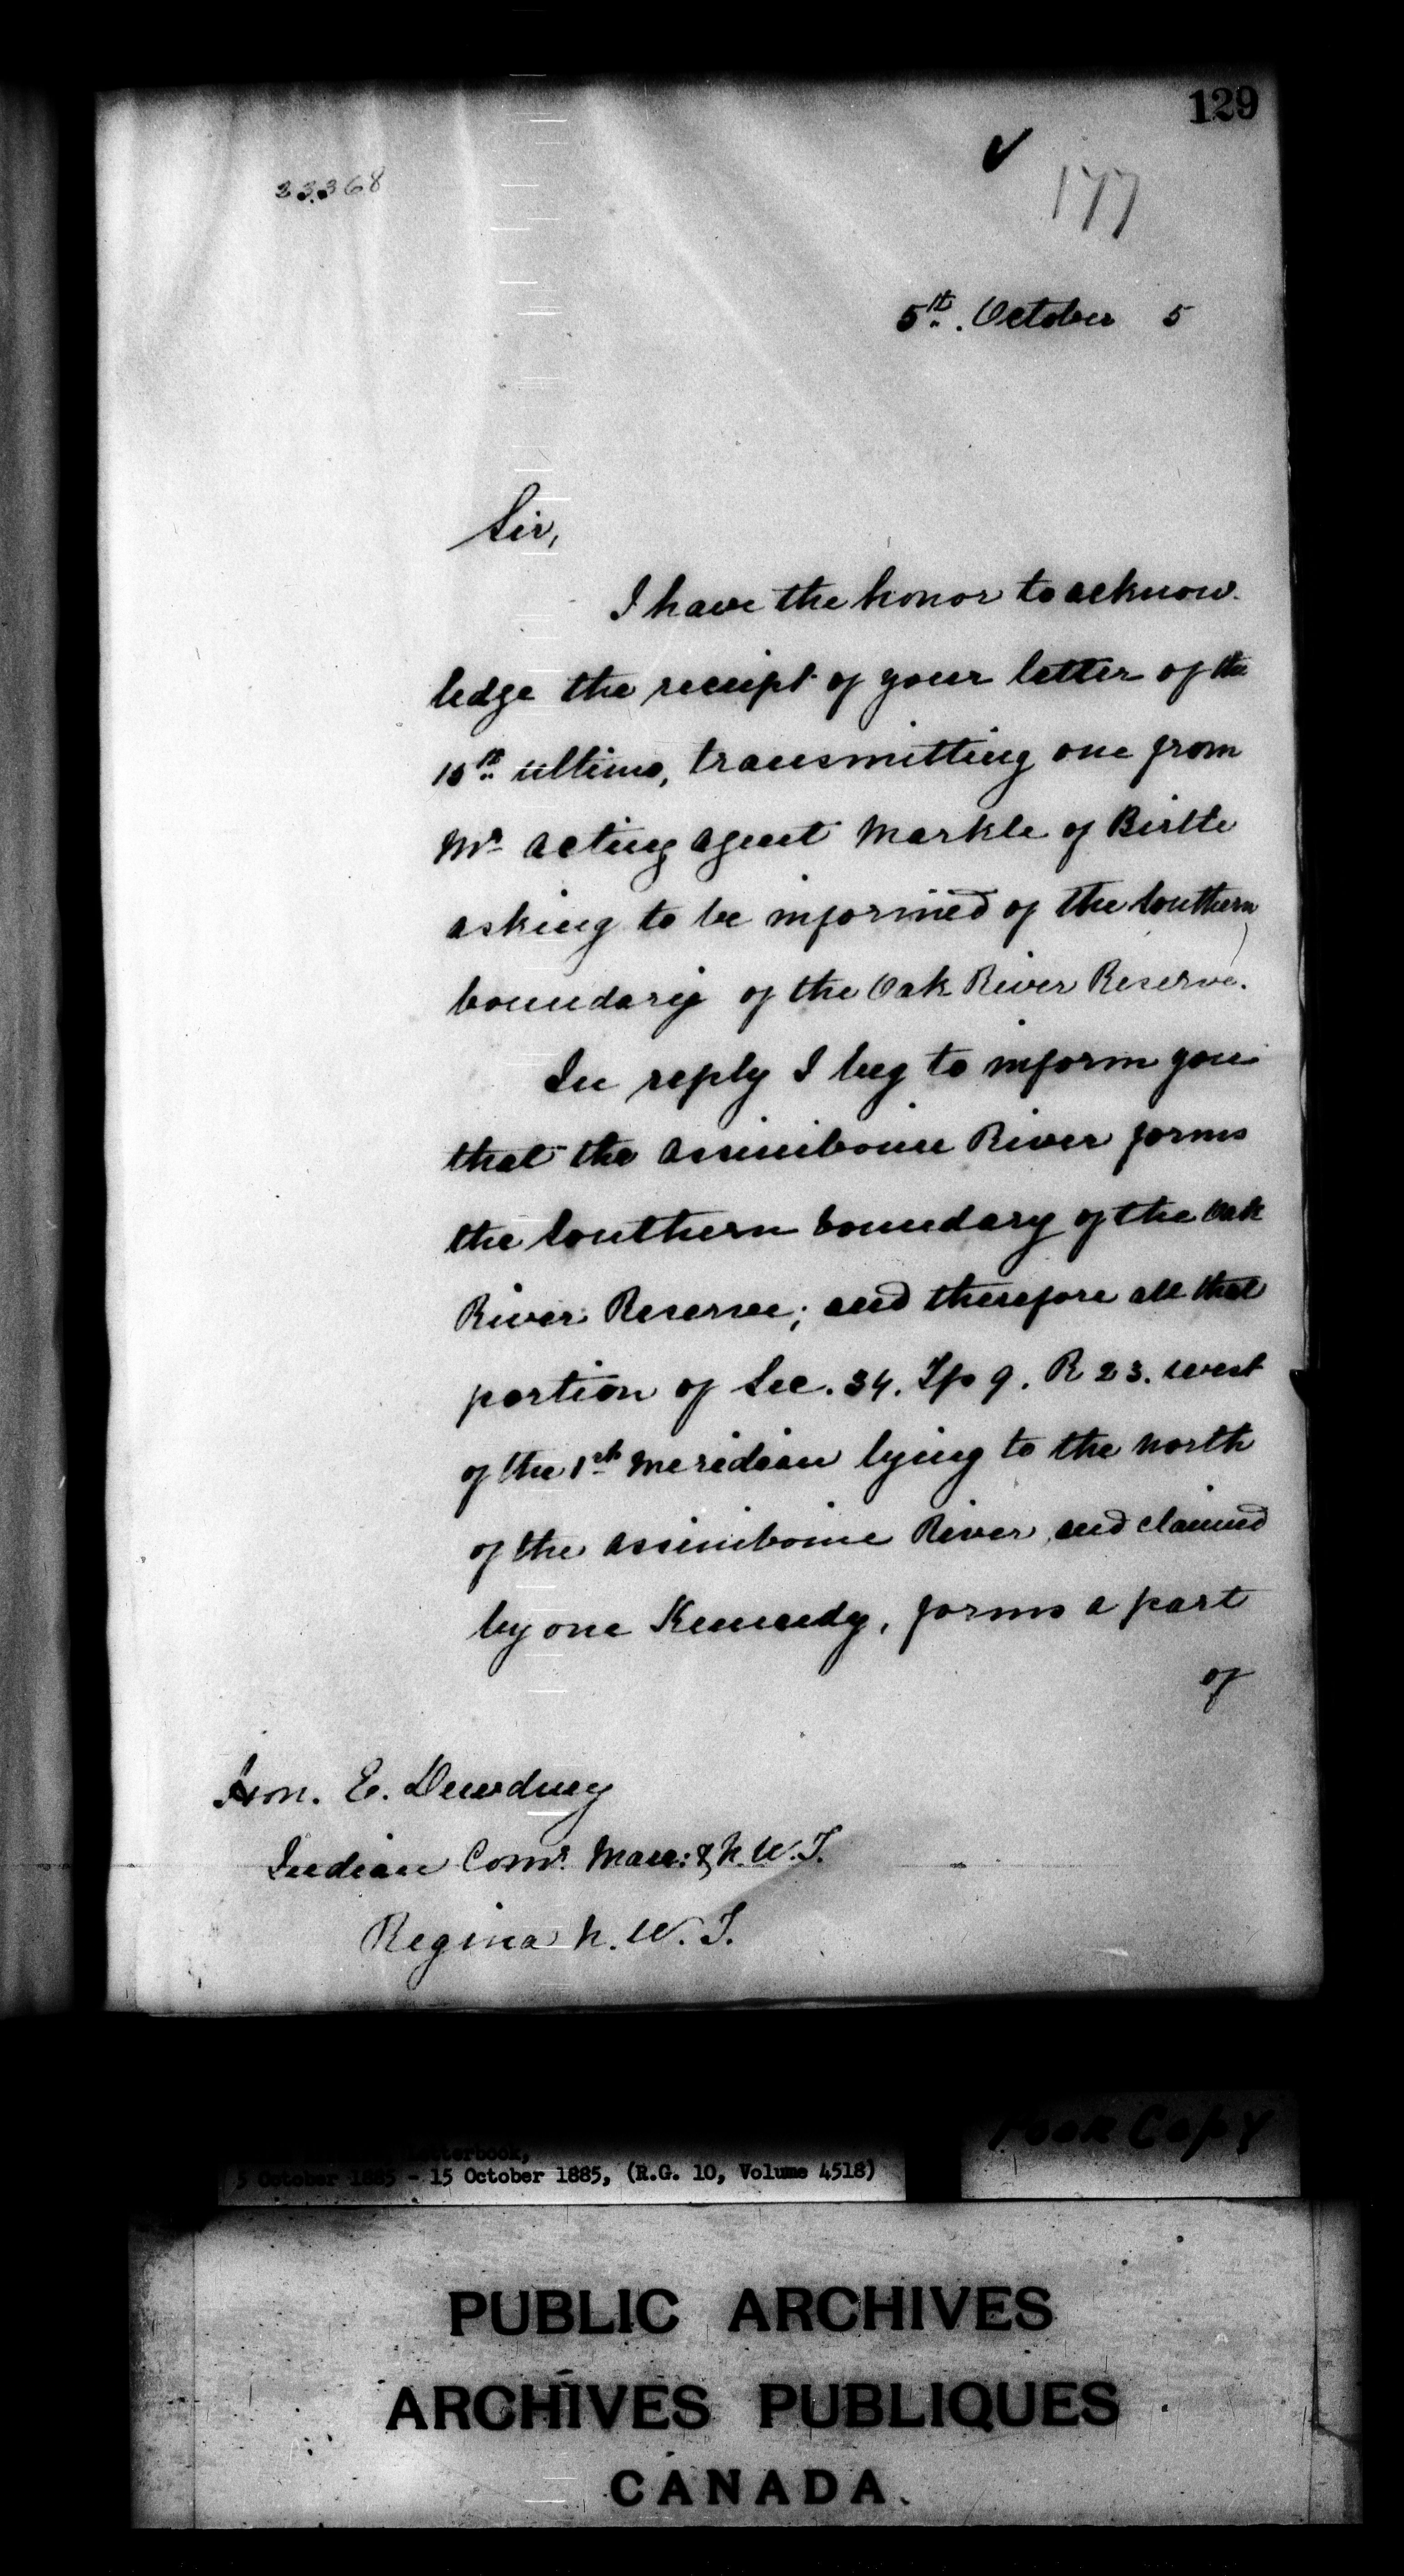 129
177
23.368
5th. October 5
Sir,
I have the honor to acknow-
ledge the receipt of your letter of the
15th ultimo, transmitting one from
Mr Acting Agent Markle of Birtle
asking to be informed of the Southern
boundary of the Oak River Reserve.
In reply I beg to inform you
that the Assiniboine River forms
the Southern boundary of the Oak
River Reserve; and therefore all that
portion of Sec. 34. Tp 9. R 23. west
of the 1st Meridian lying to the north
of the Assiniboine River and claimed
by one Kennedy, forms a part
of
Hon. E. Dewdney
Indian Comr. Man: & N.W.T.
Regina N.W.T.
Poor Copy
Letterbook,
5 October 1885 - 15 October 1885, (R.G. 10, Volume 4518)
PUBLIC ARCHIVES
ARCHIVES PUBLIQUES
CANADA